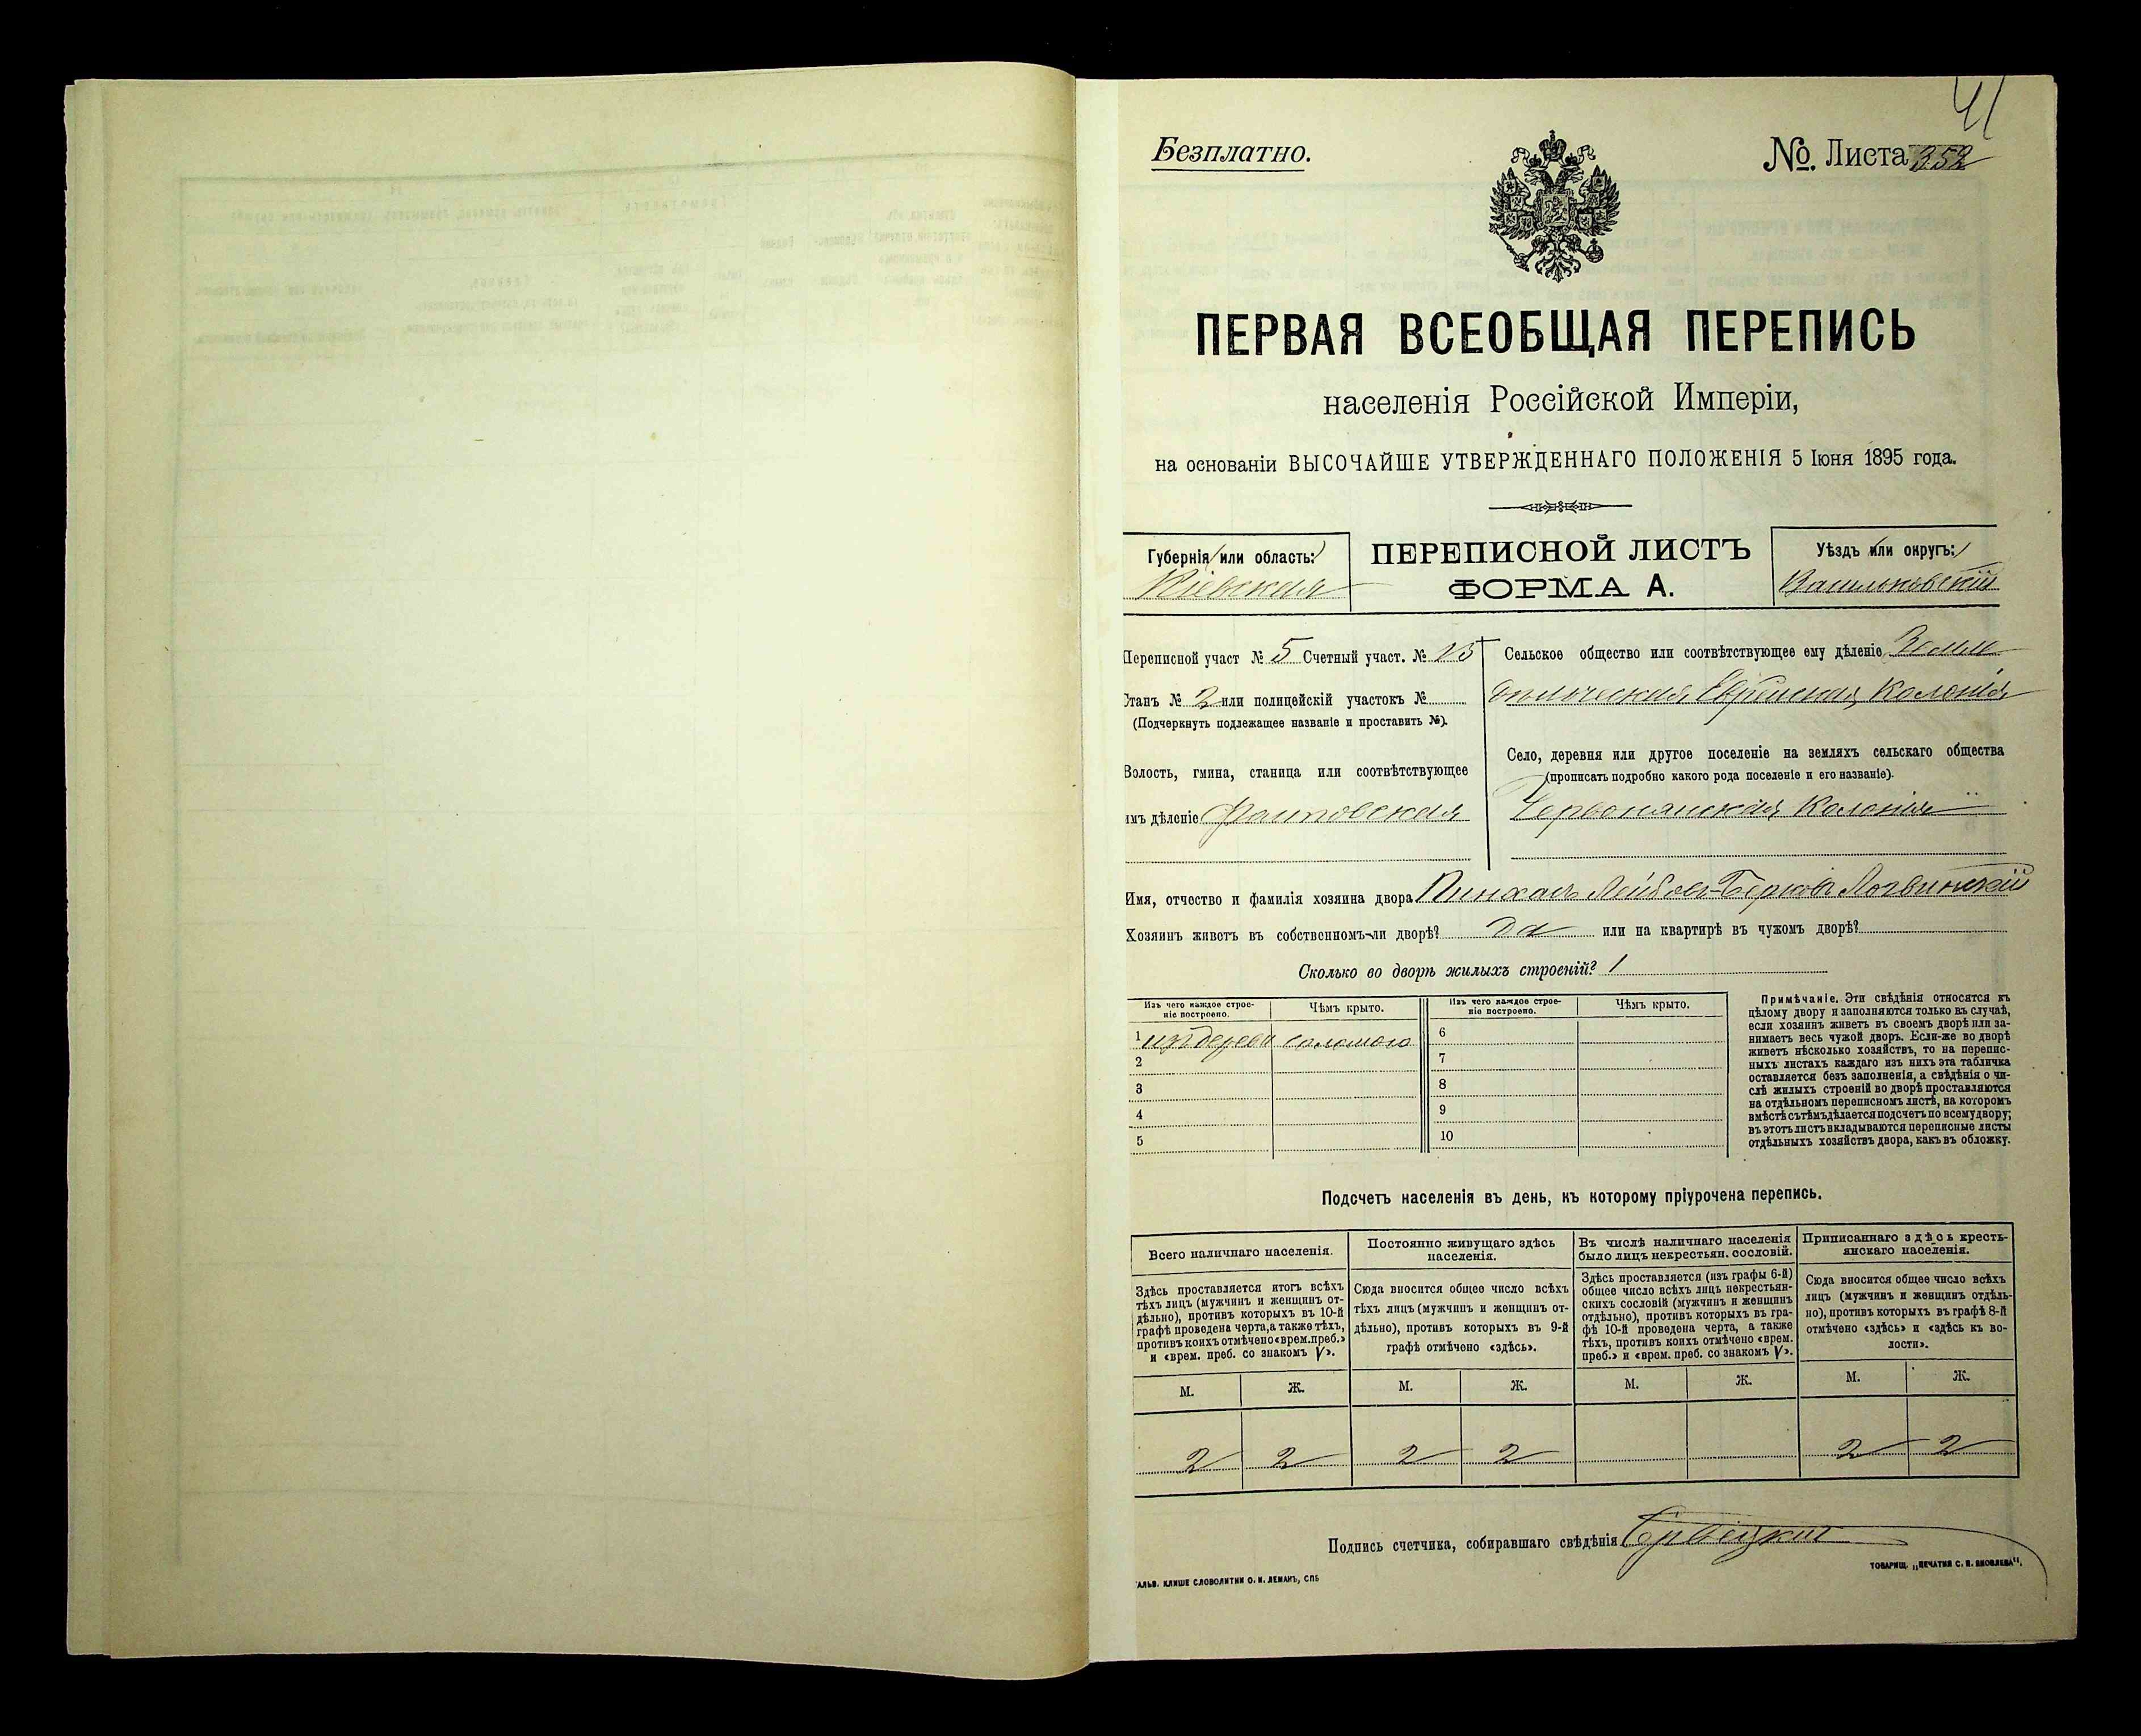 41
Безплатно.
№. Листа 352
ПЕРВАЯ ВСЕОБЩАЯ ПЕРЕПИСЬ
населенія Россійской Имперіи,
на основаніи ВЫСОЧАЙШЕ УТВЕРЖДЕННАГО ПОЛОЖЕНІЯ 5 Іюня 1895 года.
Губернія или область:
Кіевская
ПЕРЕПИСНОЙ ЛИСТЪ
ФОРМА А.
Уѣздъ или округъ:
Васильковскій
Переписной участ № 5 Счетный участ. № 13
Станъ № 2 или полицейскій участокъ №
(Подчеркнуть подлежащее названіе и проставить №).
Волость, гмина, станица или соотвѣтствующее
имъ дѣленіе
Сельское общество или соотвѣтствующее ему дѣленіе Земле
дѣльческая Еврейская Колонія
Село, деревня или другое поселеніе на земляхъ сельскаго общества
(прописать подробно какого рода поселеніе и его названіе).
Червонянская Колонія
Имя, отчество и фамилія хозяина двора Пинхасъ Лейбовъ-Берковъ Логвинскій
Хозяинъ живетъ въ собственномъ-ли дворѣ? Да или на квартирѣ въ чужомъ дворѣ?
Сколько во дворѣ жилыхъ строеній? 1
Изъ чего каждое строеніе построено. Чѣмъ крыто. Изъ чего каждое строеніе построено. Чѣмъ крыто.
1 изъ дерева соломою 6
2 7
3 8
4 9
5 10
Примѣчаніе. Эти свѣдѣнія относятся къ
цѣлому двору и заполняются только въ случаѣ,
если хозяинъ живетъ въ своемъ дворѣ или за-
нимаетъ весь чужой дворъ. Если-же во дворѣ
живетъ нѣсколько хозяйствъ, то на перепис-
ныхъ листахъ каждаго изъ нихъ эта табличка
оставляется безъ заполненія, а свѣдѣнія о чи-
слѣ жилыхъ строеній во дворѣ проставляются
на отдѣльномъ переписномъ листѣ, на которомъ
вмѣстѣ съ тѣмъ дѣлается подсчетъ по всему двору;
въ этотъ листъ вкладываются переписные листы
отдѣльныхъ хозяйствъ двора, какъ въ обложку.
Подсчетъ населенія въ день, къ которому пріурочена перепись.
Всего наличнаго населенія.
Здѣсь проставляется итогъ всѣхъ
тѣхъ лицъ (мужчинъ и женщинъ от-
дѣльно), противъ которыхъ въ 10-й
графѣ проведена черта, а также тѣхъ,
противъ коихъ отмѣчено «врем. преб.»
и «врем. преб. со знакомъ V».
Постоянно живущаго здѣсь
населенія.
Сюда вносится общее число всѣхъ
тѣхъ лицъ (мужчинъ и женщинъ от-
дѣльно), противъ которыхъ въ 9-й
графѣ отмѣчено «здѣсь».
Въ числѣ наличнаго населенія
было лицъ некрестьян. сословій.
Здѣсь проставляется (изъ графы 6-й)
общее число всѣхъ лицъ некрестьян-
скихъ сословій (мужчинъ и женщинъ
отдѣльно), противъ которыхъ въ гра-
фѣ 10-й проведена черта, а также
тѣхъ, противъ коихъ отмѣчено «врем.
преб.» и «врем. преб. со знакомъ V».
Приписаннаго здѣсь кресть-
янскаго населенія.
Сюда вносится общее число всѣхъ
лицъ (мужчинъ и женщинъ отдѣль-
но), противъ которыхъ въ графѣ 8-й
отмѣчено «здѣсь» и «здѣсь къ во-
лости».
М. Ж. М. Ж. М. Ж. М. Ж.
2 2 2 2 2 2
Подпись счетчика, собиравшаго свѣдѣнія
ГАЛЬВ. КЛИШЕ СЛОВОЛИТНИ О. И. ЛЕМАНЪ, СПБ
ТОВАРИЩ. „ПЕЧАТНЯ С. П. ЯКОВЛЕВА“.